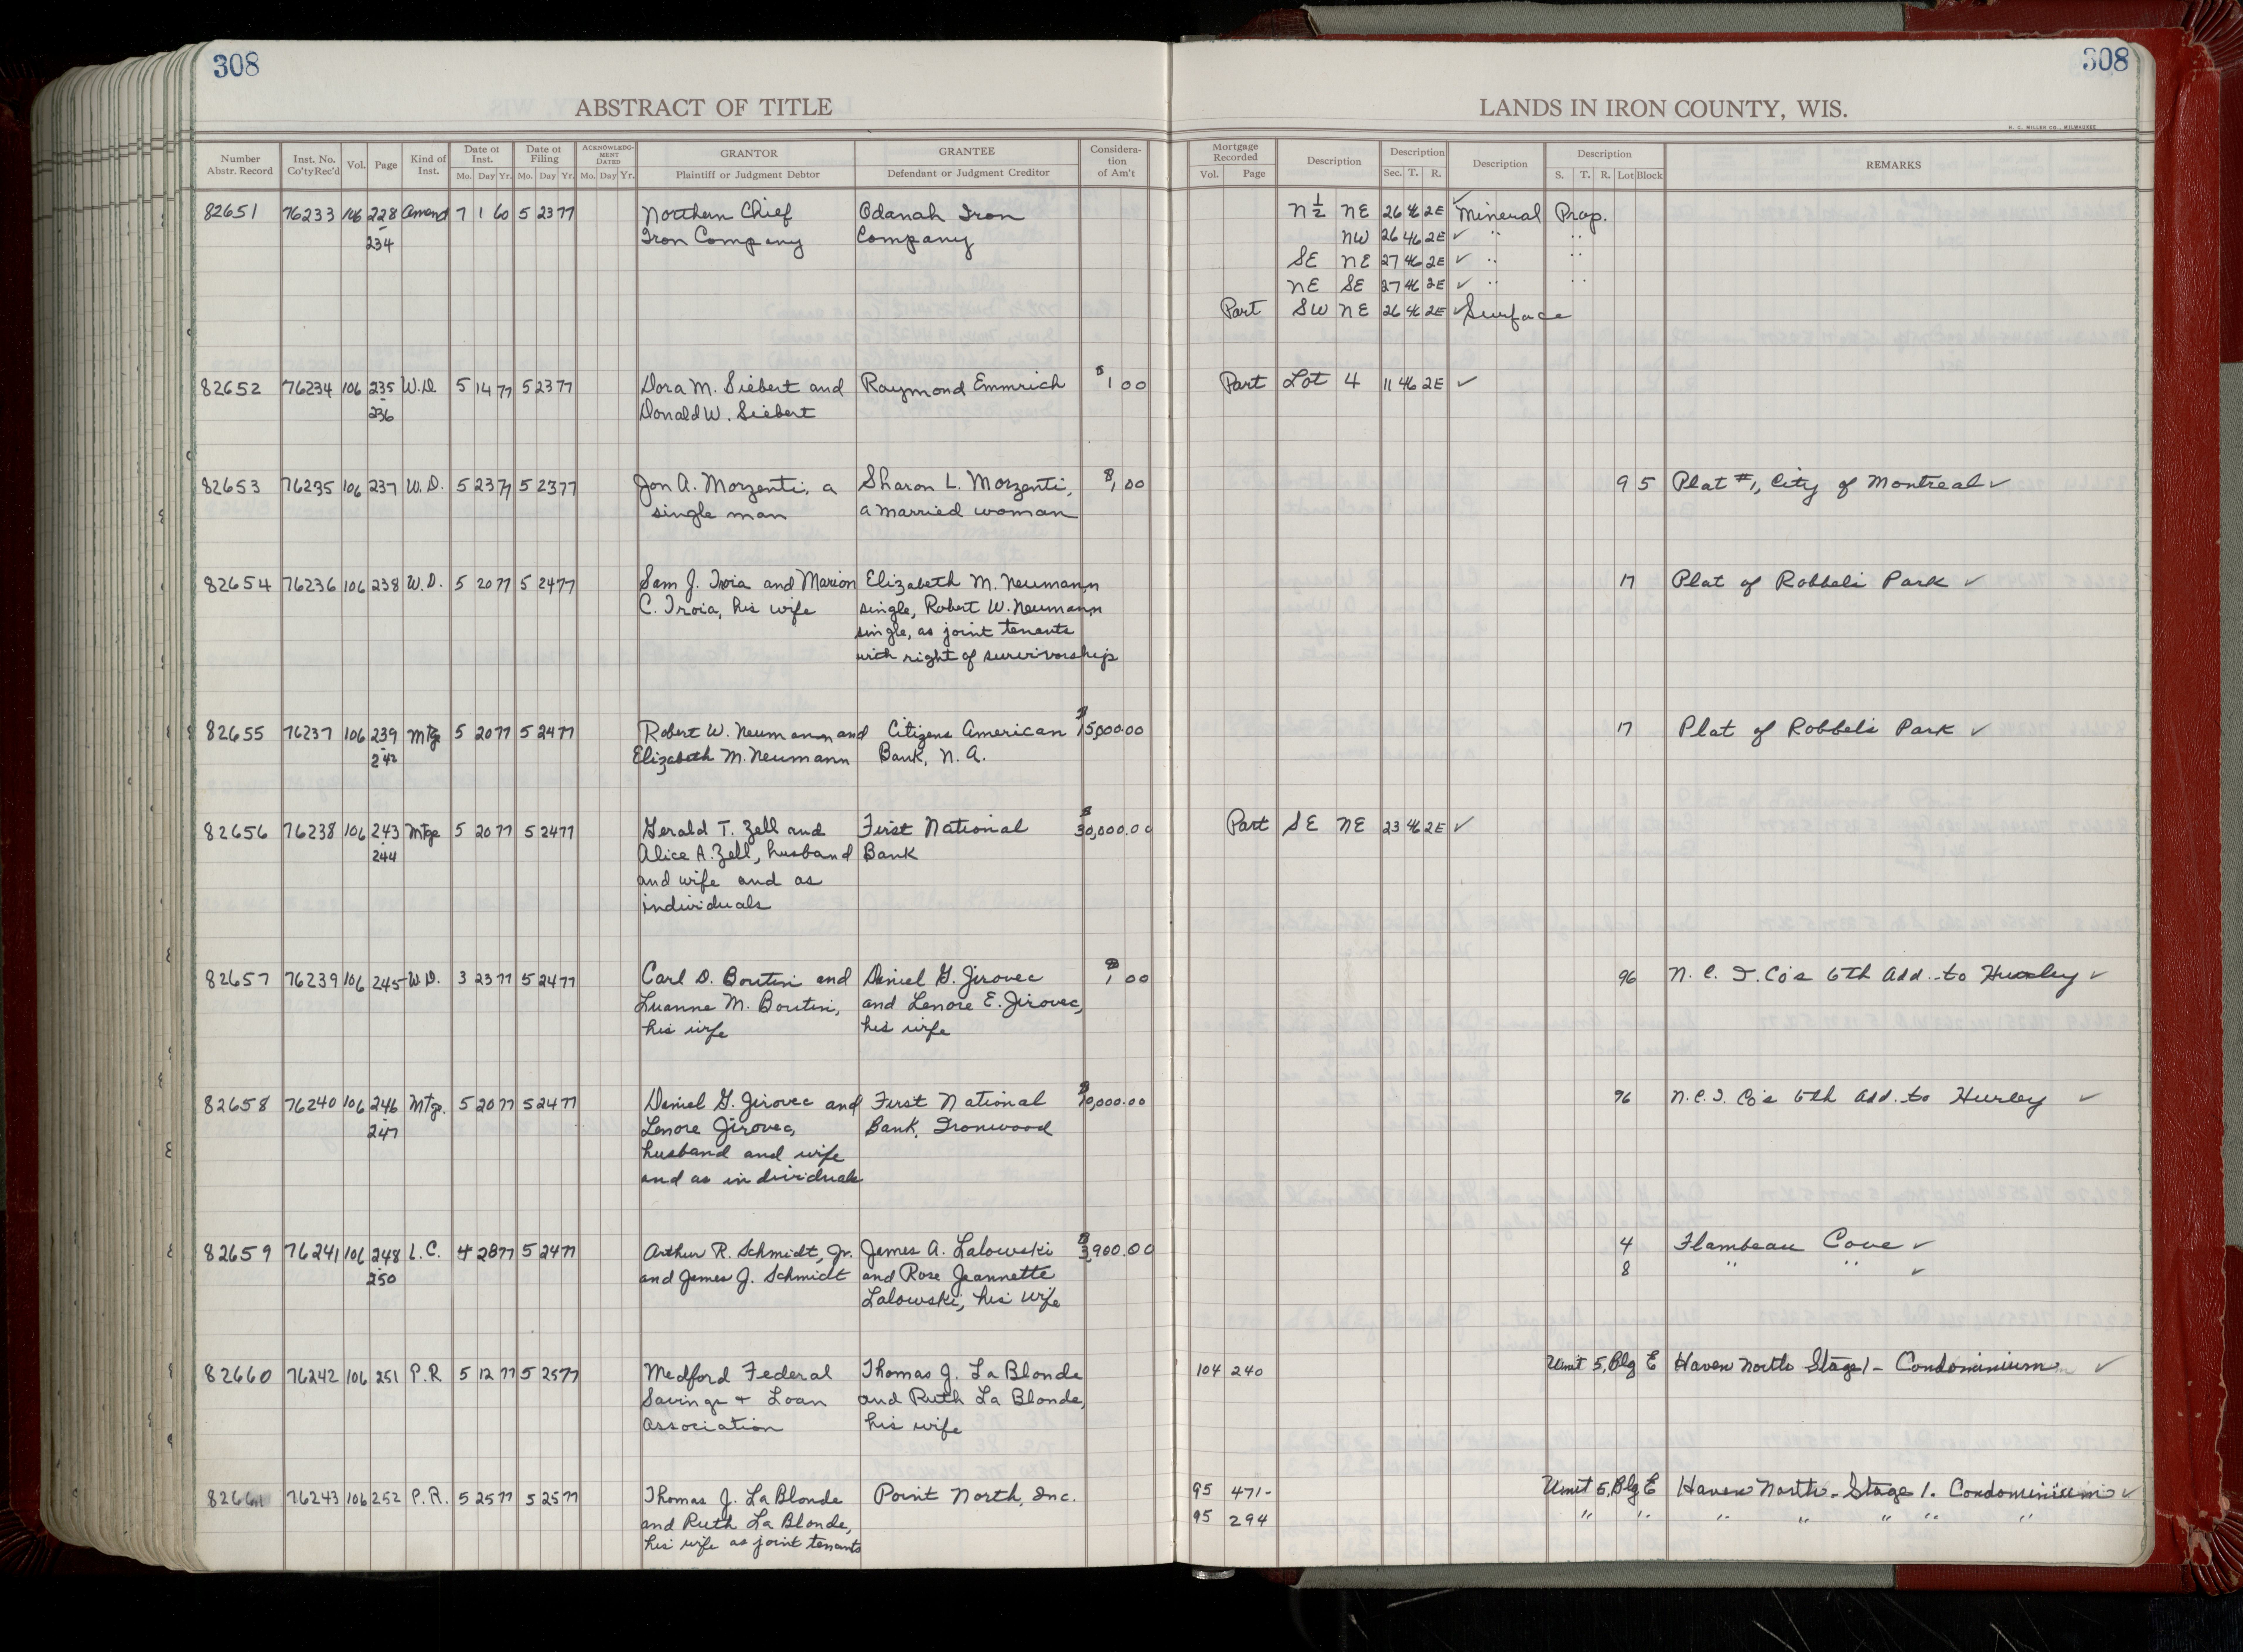 308
308
ABSTRACT OF TITLE
LANDS IN IRON COUNTY, WIS.
H. C. MILLER CO., MILWAUKEE
Number Abstr. Record | Inst. No. Co'ty Rec'd | Vol. | Page | Kind of Inst. | Date of Inst. Mo. Day Yr. | Date of Filing Mo. Day Yr. | ACKNOWLEDGMENT DATED Mo. Day Yr. | GRANTOR Plaintiff or Judgment Debtor | GRANTEE Defendant or Judgment Creditor | Consideration of Am't | Mortgage Recorded Vol. Page | Description | Description Sec. T. R. | Description | Description S. T. R. Lot Block | REMARKS
82651 76233 106 228 Amend 7 1 60 5 23 77 Northern Chief Odanah Iron N 1/2 NE 26 46 2E ✓ Mineral Prop.
- 234 Iron Company Company NW 26 46 2E ✓ " "
SE NE 27 46 2E ✓ " "
NE SE 27 46 2E ✓ " "
Part SW NE 26 46 2E ✓ Surface
82652 76234 106 235 W.D 5 14 77 5 23 77 Dora M. Siebert and Raymond Emmrich $1 00 Part Lot 4 11 46 2E ✓
- 236 Donald W. Siebert
82653 76235 106 237 W.D. 5 23 77 5 23 77 Jon A. Morzenti, a Sharon L. Morzenti, $1,00 9 5 Plat #1, City of Montreal ✓
single man a married woman
82654 76236 106 238 W.D. 5 20 77 5 24 77 Sam J. Troia and Marion Elizabeth M. Neumann 17 Plat of Robbels Park ✓
C. Troia, his wife single, Robert W. Neumann
single, as joint tenants
with right of survivorship
82655 76237 106 239 Mtge 5 20 77 5 24 77 Robert W. Neumann and Citizens American 15,000.00 17 Plat of Robbels Park ✓
- 242 Elizabeth M. Neumann Bank, N. A.
82656 76238 106 243 Mtge 5 20 77 5 24 77 Gerald T. Zell and First National $30,000.00 Part SE NE 23 46 2E ✓
- 244 Alice A. Zell, husband Bank
and wife and as
individuals
82657 76239 106 245 W.D. 3 23 77 5 24 77 Carl D. Boutin and Daniel G. Jirovec $1 00 96 N. C. I. Co's 6th Add. to Hurley ✓
Luanne M. Boutin, and Lenore E. Jirovec,
his wife his wife
82658 76240 106 246 Mtge. 5 20 77 5 24 77 Daniel G. Jirovec and First National $10,000.00 96 N.C.I. Co's 6th Add. to Hurley ✓
- 247 Lenore Jirovec, Bank, Ironwood
husband and wife
and as individuals
82659 76241 106 248 L.C. 4 28 77 5 24 77 Arthur R. Schmidt, Jr. James A. Lalowski $3,900.00 4 Flambeau Cove ✓
- 250 and James J. Schmidt and Rose Jeannette 8 " " ✓
Lalowski, his wife
82660 76242 106 251 P.R 5 12 77 5 25 77 Medford Federal Thomas J. La Blonde 104 240 Unit 5, Blg E Haven North Stage 1 - Condominium ✓
Savings + Loan and Ruth La Blonde,
Association his wife
82661 76243 106 252 P.R. 5 25 77 5 25 77 Thomas J. La Blonde Point North, Inc. 95 471- Unit 5, Blg E Haven North - Stage 1. Condominium ✓
and Ruth La Blonde, 95 294 " " " " " " "
his wife as joint tenants